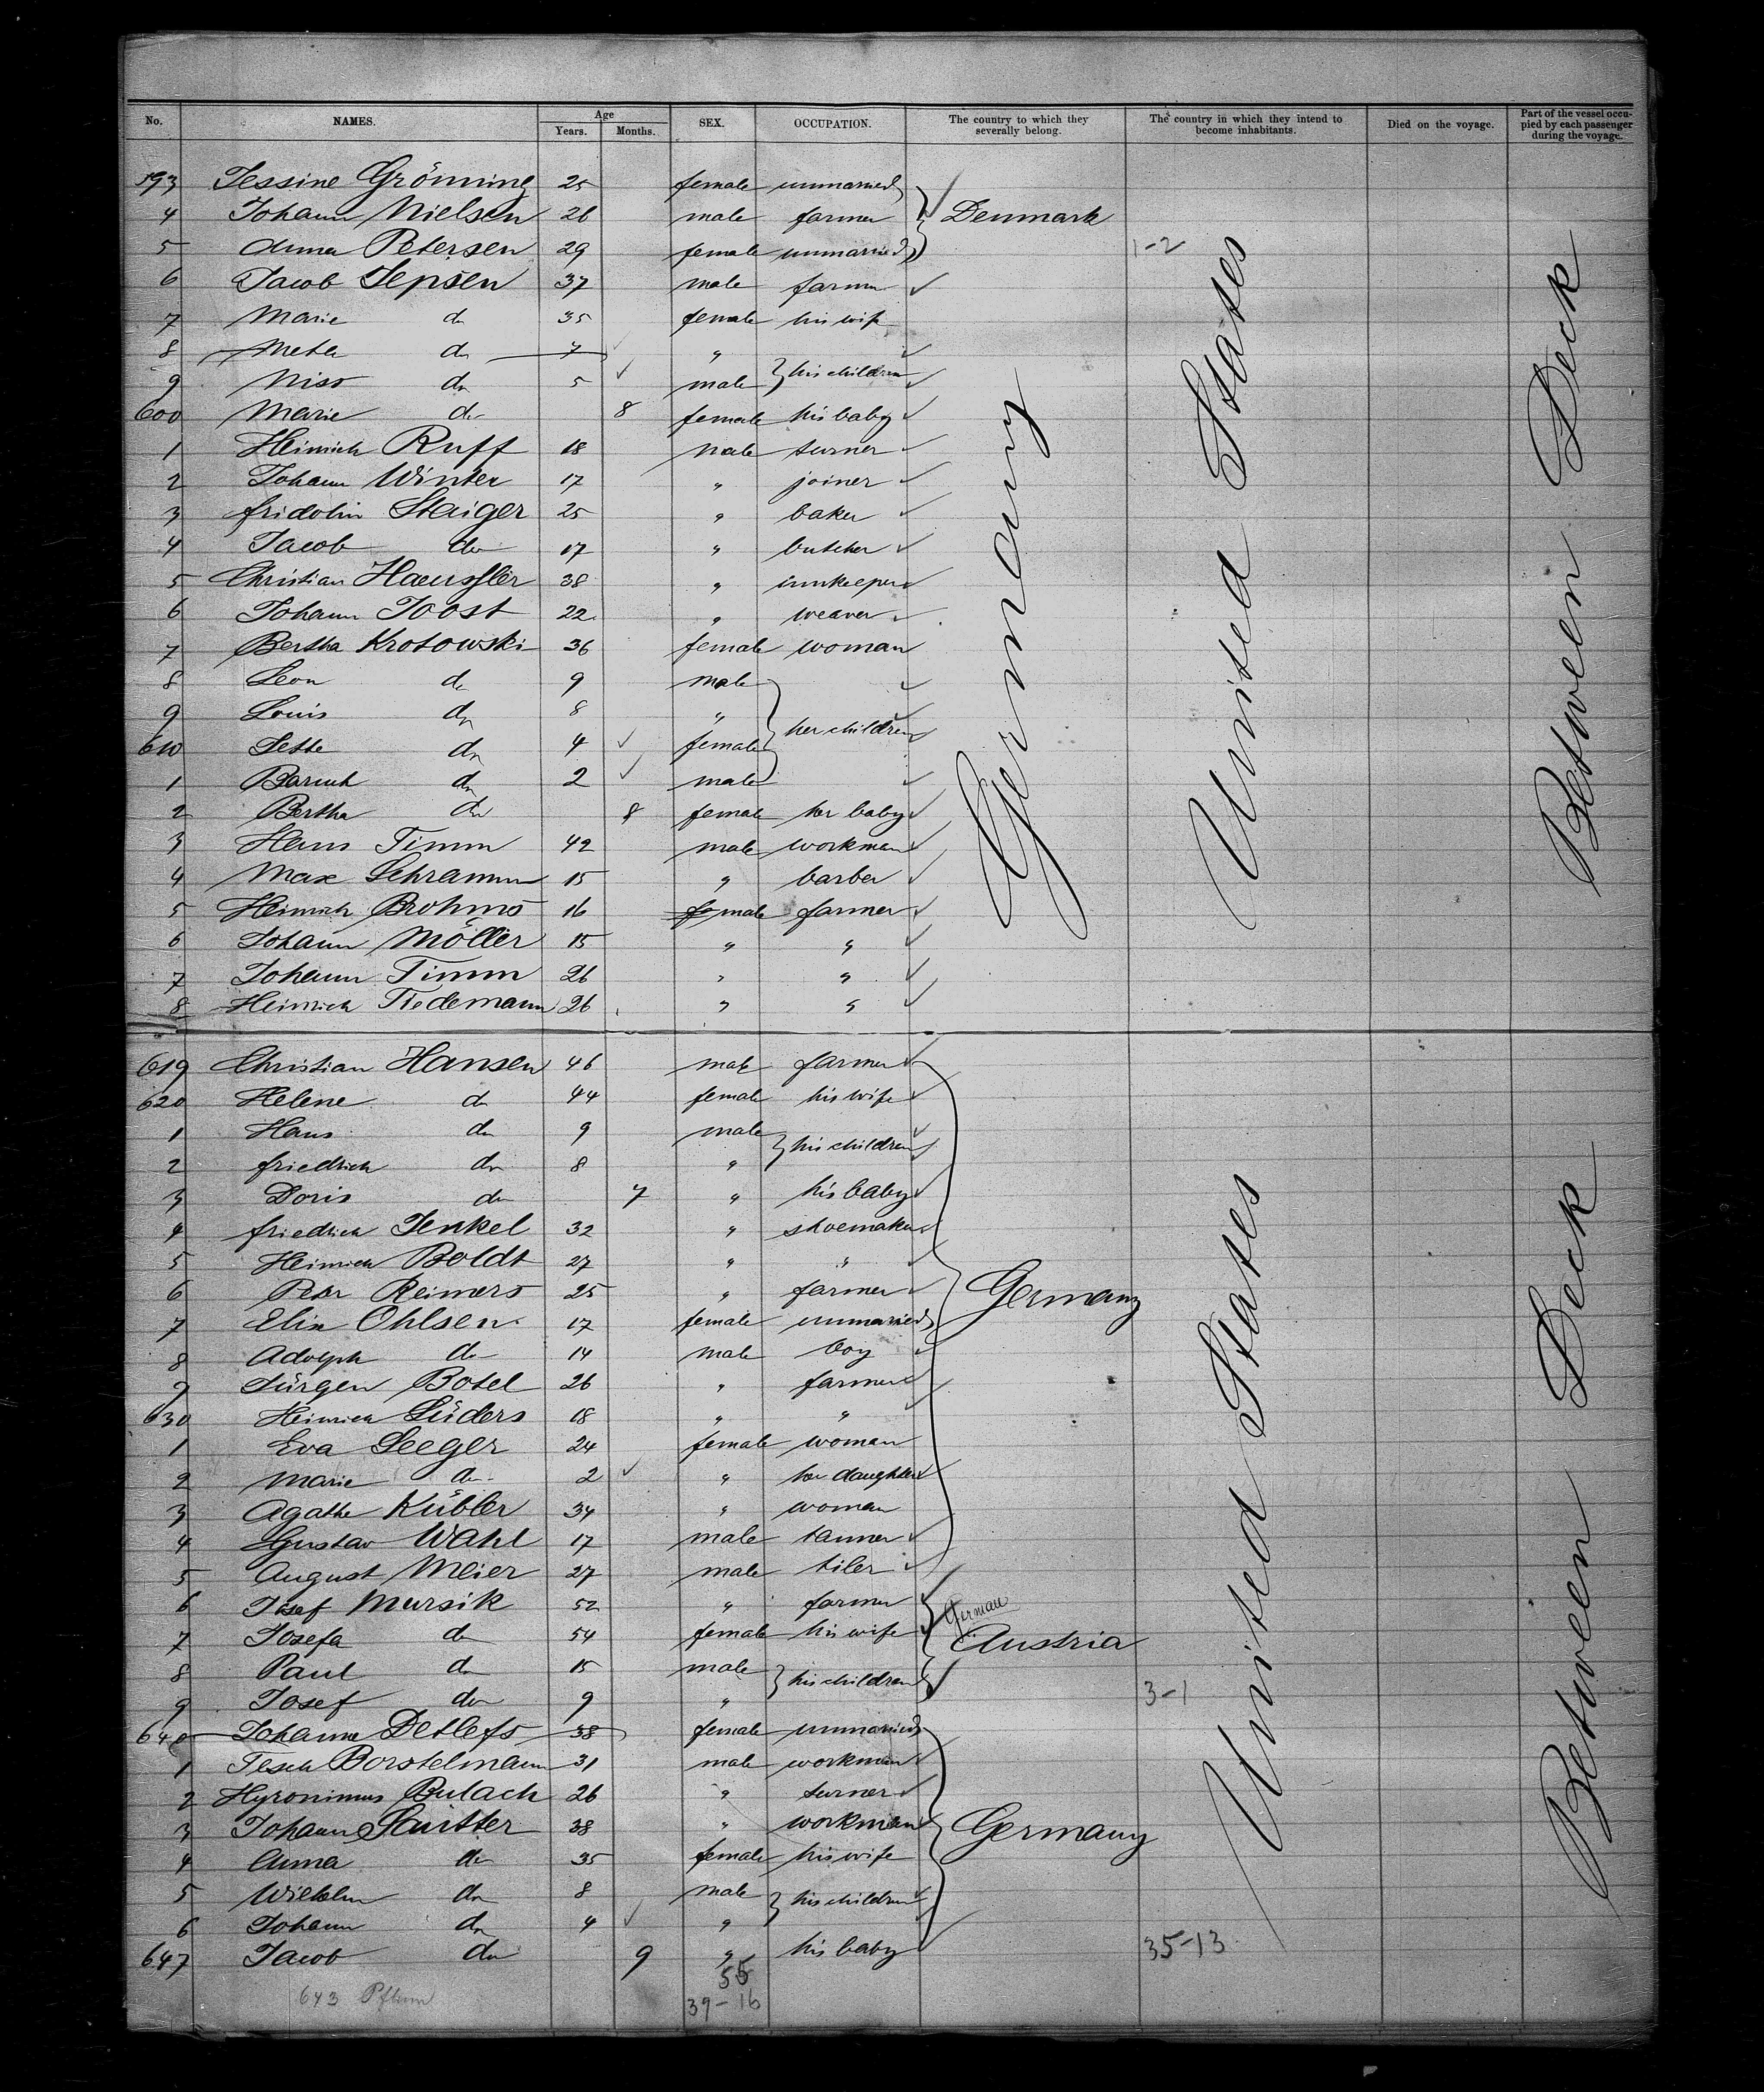 No. NAMES. Age Years. Months. SEX. OCCUPATION. The country to which they severally belong. The country in which they intend to become inhabitants. Died on the voyage. Part of the vessel occupied by each passenger during the voyage.
593 Jessine Gröning 25 female unmarried
4 Johann Nielsen 26 male farmer Denmark
5 Anna Petersen 29 female unmarried 1-2
6 Jacob Jepsen 37 male farmer
7 Marie do 35 female his wife
8 Meta do 7 "
9 Niss do 5 male his children
600 Marie do 8 female his baby
1 Heinrich Ruff 18 male turner
2 Johann Winter 17 " joiner
3 fridolin Staiger 25 " baker
4 Jacob do 17 " butcher
5 Christian Haeussler 38 " innkeeper
6 Johann Joost 22 " weaver
7 Bertha Krotowski 36 female woman
8 Leon do 9 male
9 Louis do 8 " her children
610 Jette do 4 female
1 Baruch do 2 male
2 Bertha do 8 female her baby
3 Hans Timm 42 male workman
4 Max Schramm 15 " barber
5 Heinrich Brohms 16 male farmer
6 Johann Möller 15 " "
7 Johann Timm 26 " "
8 Heinrich Tiedemann 26 " "
Germany
United States
Between Deck
619 Christian Hansen 46 male farmer
620 Helene do 44 female his wife
1 Hans do 9 male his children
2 friedrich do 8 "
3 Doris do 7 " his baby
4 friedrich Jenkel 32 " shoemaker
5 Heinrich Boldt 27 " "
6 Peter Reimers 25 " farmer Germany
7 Elise Ohlsen 17 female unmarried
8 Adolph do 14 male boy
9 Jürgen Botel 26 " farmer
630 Heinrich Lüders 18 " "
1 Eva Seeger 24 female woman
2 Marie do 2 " her daughter
3 Agathe Kübler 34 " woman
4 Gustav Wahl 17 male tanner
5 August Meier 27 male tiler
6 Josef Mursik 52 " farmer German
7 Josefa do 54 female his wife Austria
8 Paul do 15 male his children
9 Josef do 9 " 3-1
640 Johanne Detlefs 38 female unmarried
1 Tesch Borstelmann 31 male workman
2 Hyronimus Bulach 26 " turner
3 Johann Sautter 38 " workman Germany
4 Anna do 35 female his wife
5 Wilhelm do 8 male his children
6 Johann do 4 "
647 Jacob do 9 " his baby 35-13
United States
Between Deck
55
643
39-16